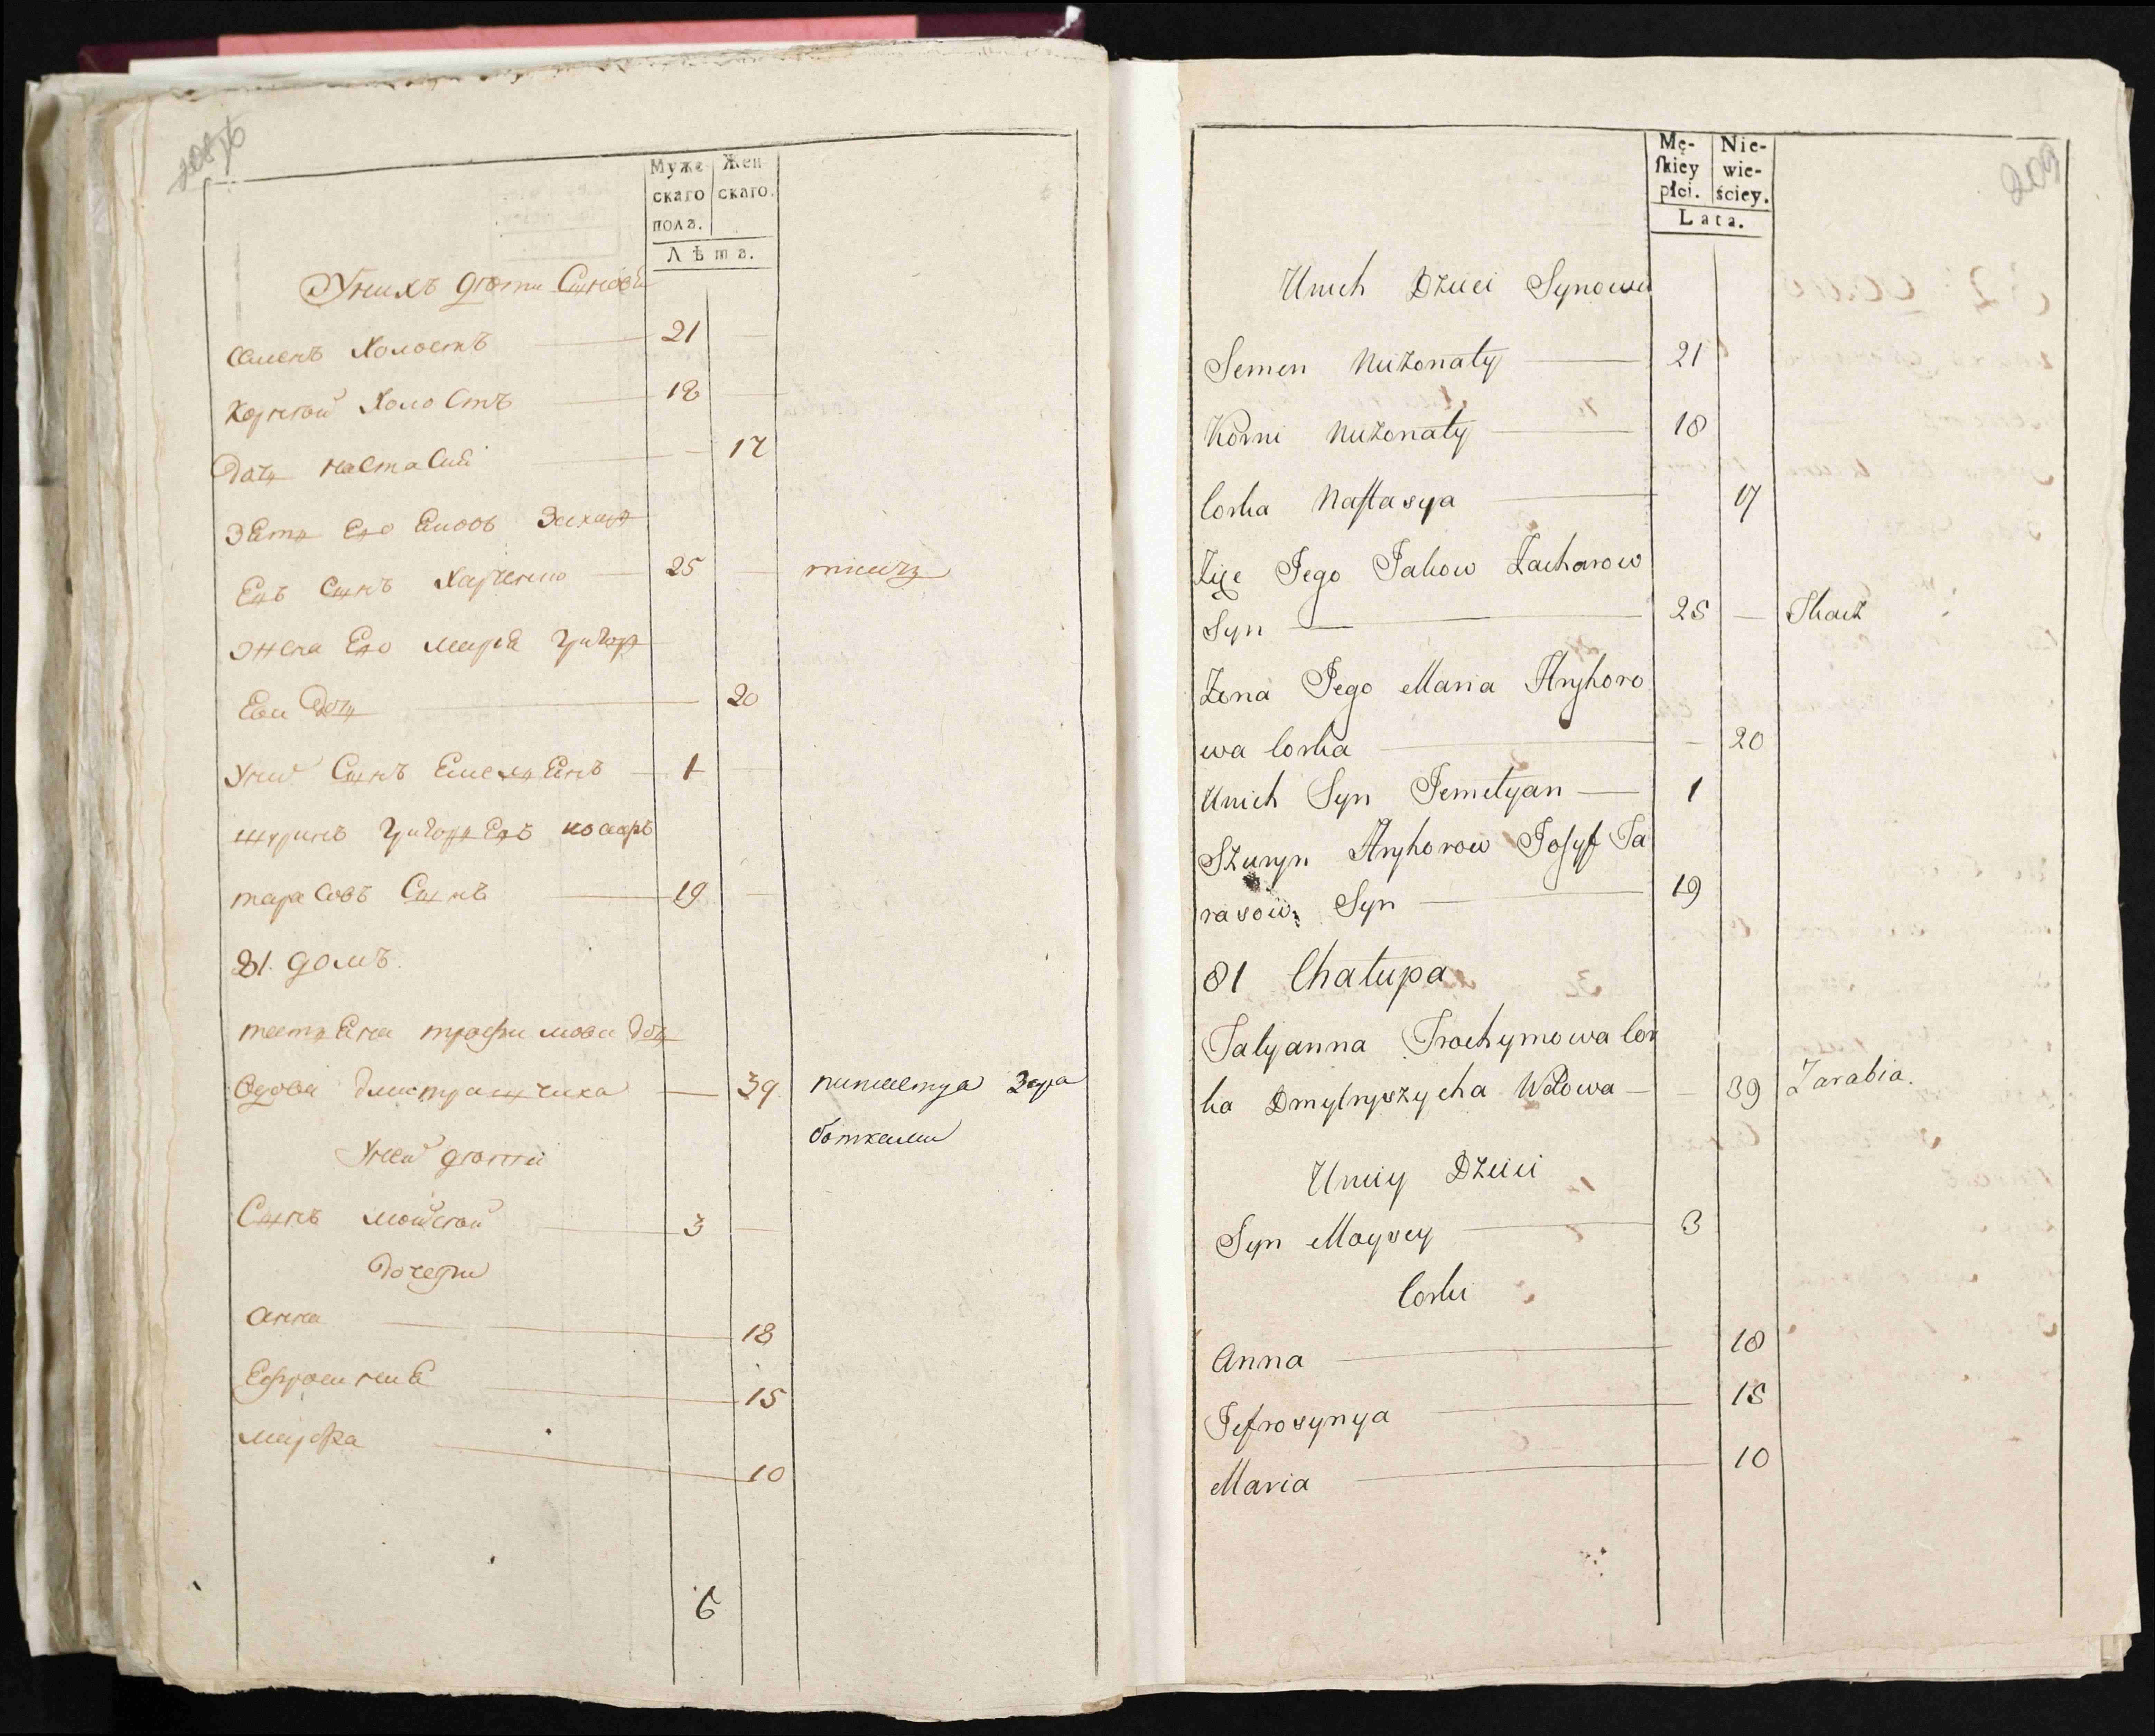 208 об
Муже- Жен
скаго скаго.
пола.
Лѣта.
Унихъ дѣти Синовя
Семенъ Холостъ 21
Корнѣй Холостъ 18
Дочь настасия 17
Зеть Его Яковъ Захаръ
Евъ Сынъ Харченко 25 ткачь
Жена Его Марія Григорь
Ева Дочь 20
Унихъ Сынъ Емельянъ 1
шуринъ Григорьевъ
тарасовъ Сынъ 19
81. домъ.
татьяна трофимова дочь
Вдова дмитрышиха 39 питается Зара
ботками
Уней дѣти
Сынъ мойсѣй 3
Дочери
Анна 18
Ефросиния 15
марья 10
6
209
Mę- Nie-
ſkiey wie-
płci. ściey.
Lata.
Unich Dzieci Synowie
Semen Nieżonaty 21
Korni Nieżonaty 18
Corka Naſtasya 17
Zięc Jego Jakow Zacharow
Syn 25 Tkacz
Żona Jego Maria Hryhoro
wa Corka 20
Unich Syn Jemelyan 1
Szuryn Hryhorow Joſyf Ta
rasow Syn 19
81 Chałupa
Tatyanna Trochymowa Cor
ka Dmytryszycha Wdowa 39 Zarabia.
Uniey Dzieci
Syn Moysey 3
Corki
Anna 18
Jefrosynya 15
Maria 10